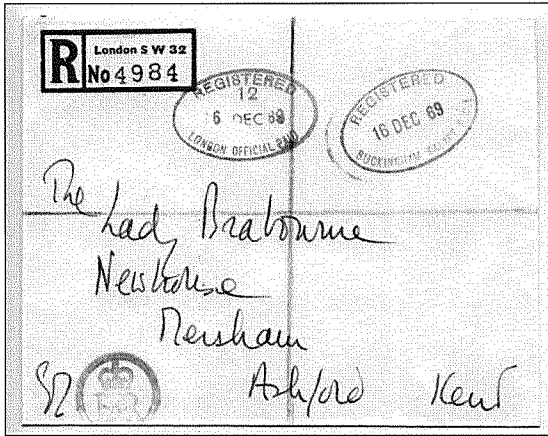 R London S W 32
No 4984
REGISTERED
12
16 DEC 69
LONDON OFFICIAL PAID
REGISTERED
16 DEC 69
BUCKINGHAM
The
Lady Brabourne
Newhouse
Mersham
Ashford Kent